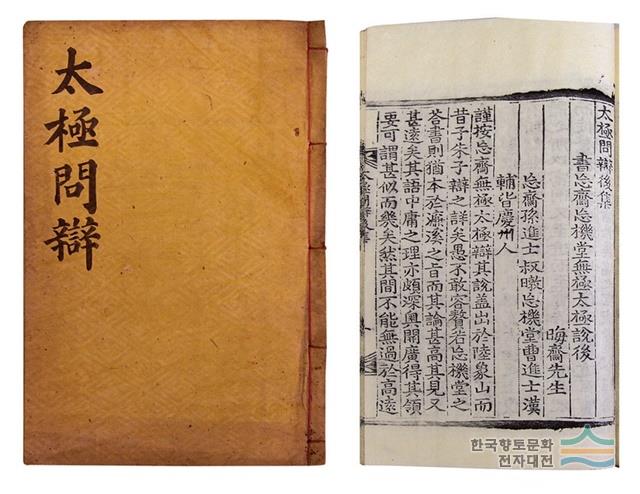 太極問辯
太極問辯後集
書忘齋忘機堂無極太極說後
晦齋先生
忘齋孫進士叔暾忘機堂曺進士漢
輔皆慶州人
謹按忘齋無極太極辯其說盖出於陸象山而
昔子朱子辯之詳矣愚不敢容贅若忘機堂之
荅書則猶本於濂溪之旨而其論甚高其見又
甚遠矣其語中庸之理亦頗深奧開廣得其領
要可謂甚似而幾矣然其間不能無過於高遠
한국향토문화
전자대전